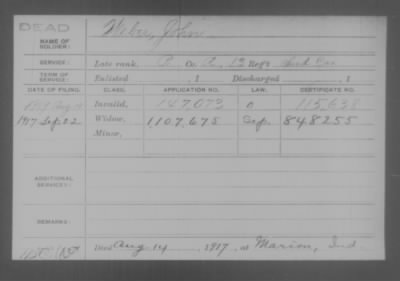 DEAD
NAME OF SOLDIER: Weber, John
SERVICE: Late rank, P. Co. A, 13 Reg't
TERM OF SERVICE: Enlisted , 1 Discharged , 1
DATE OF FILING. CLASS. APPLICATION NO. LAW. CERTIFICATE NO.
Invalid, 147,073 115,638
1917 Sep. 22 Widow, 1107,675 848255
Minor,
ADDITIONAL SERVICES:
REMARKS:
Died Aug 14, 1917, at Marion, Ind.